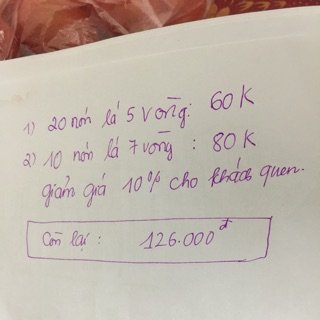 1) 20 nón lá 5 vòng: 60K
2) 10 nón lá 7 vòng : 80K
giảm giá 10% cho khách quen.
Còn lại : 126.000đ